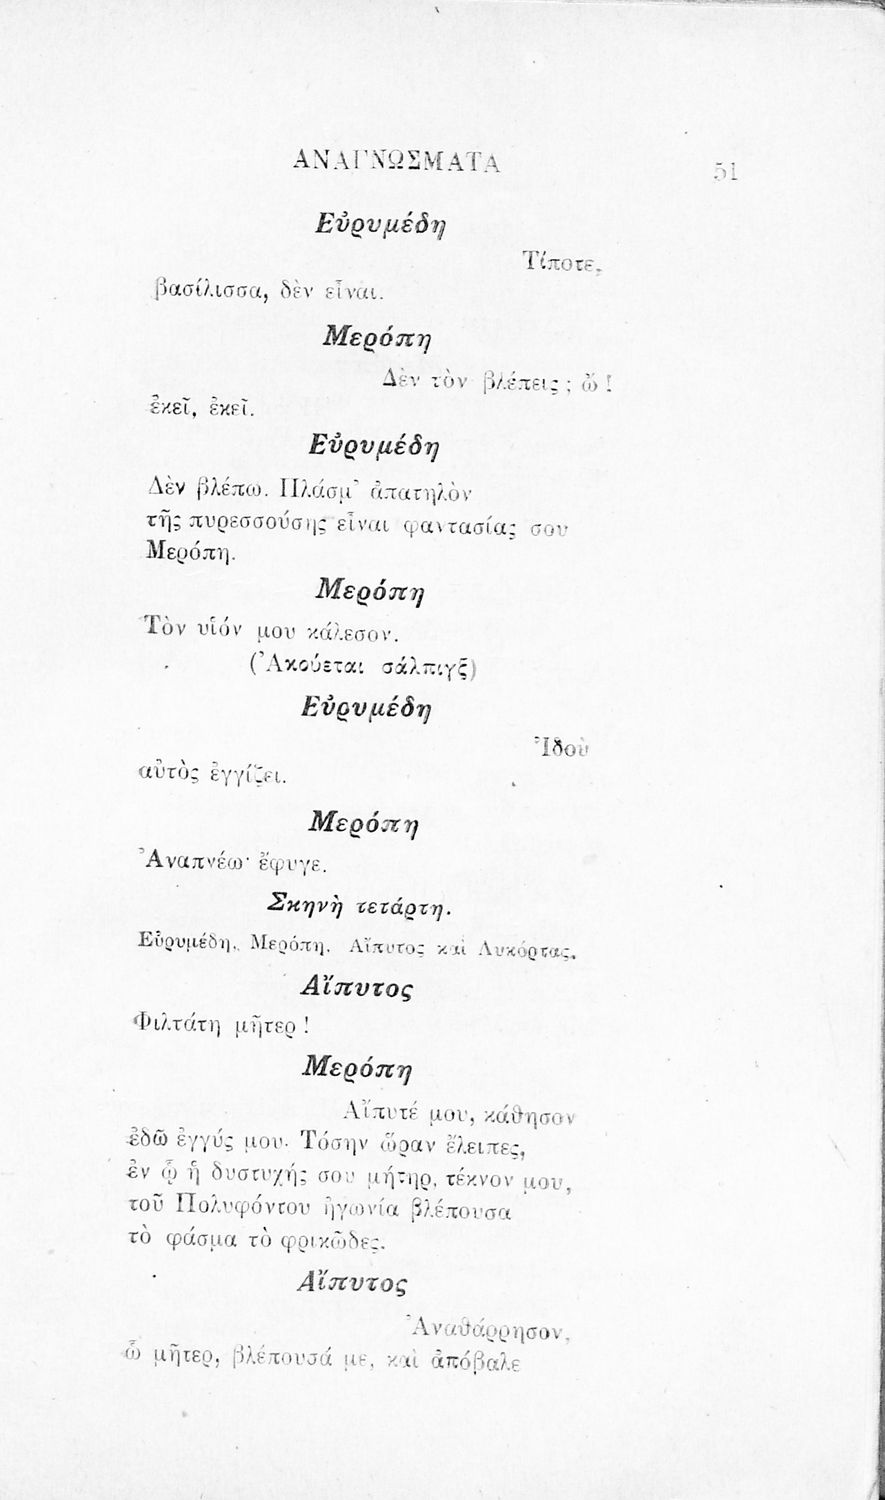 ΑΝΑΓΝΩΣΜΑΤΑ 51
Εὐρυμέδη
Τίποτε,
βασίλισσα, δὲν εἶναι.
Μερόπη
Δὲν τὸν βλέπεις ; ὤ !
ἐκεῖ, ἐκεῖ.
Εὐρυμέδη
Δὲν βλέπω. Πλάσμ’ ἀπατηλὸν
τῆς πυρεσσούσης εἶναι φαντασίας σου
Μερόπη.
Μερόπη
Τὸν υἱόν μου κάλεσον.
(Ἀκούεται σάλπιγξ)
Εὐρυμέδη
Ἰδοὺ
αὐτὸς ἐγγίζει.
Μερόπη
Ἀναπνέω· ἔφυγε.
Σκηνὴ τετάρτη.
Εὐρυμέδη, Μερόπη, Αἴπυτος καὶ Λυκόρτας.
Αἴπυτος
Φιλτάτη μῆτερ !
Μερόπη
Αἴπυτέ μου, κάθησον
ἐδῶ ἐγγύς μου. Τόσην ὥραν ἔλειπες,
ἐν ᾧ ἡ δυστυχής σου μήτηρ, τέκνον μου,
τοῦ Πολυφόντου ἠγωνία βλέπουσα
τὸ φάσμα τὸ φρικῶδες.
Αἴπυτος
Ἀναθάρρησον,
ὦ μῆτερ, βλέπουσά με, καὶ ἀπόβαλε